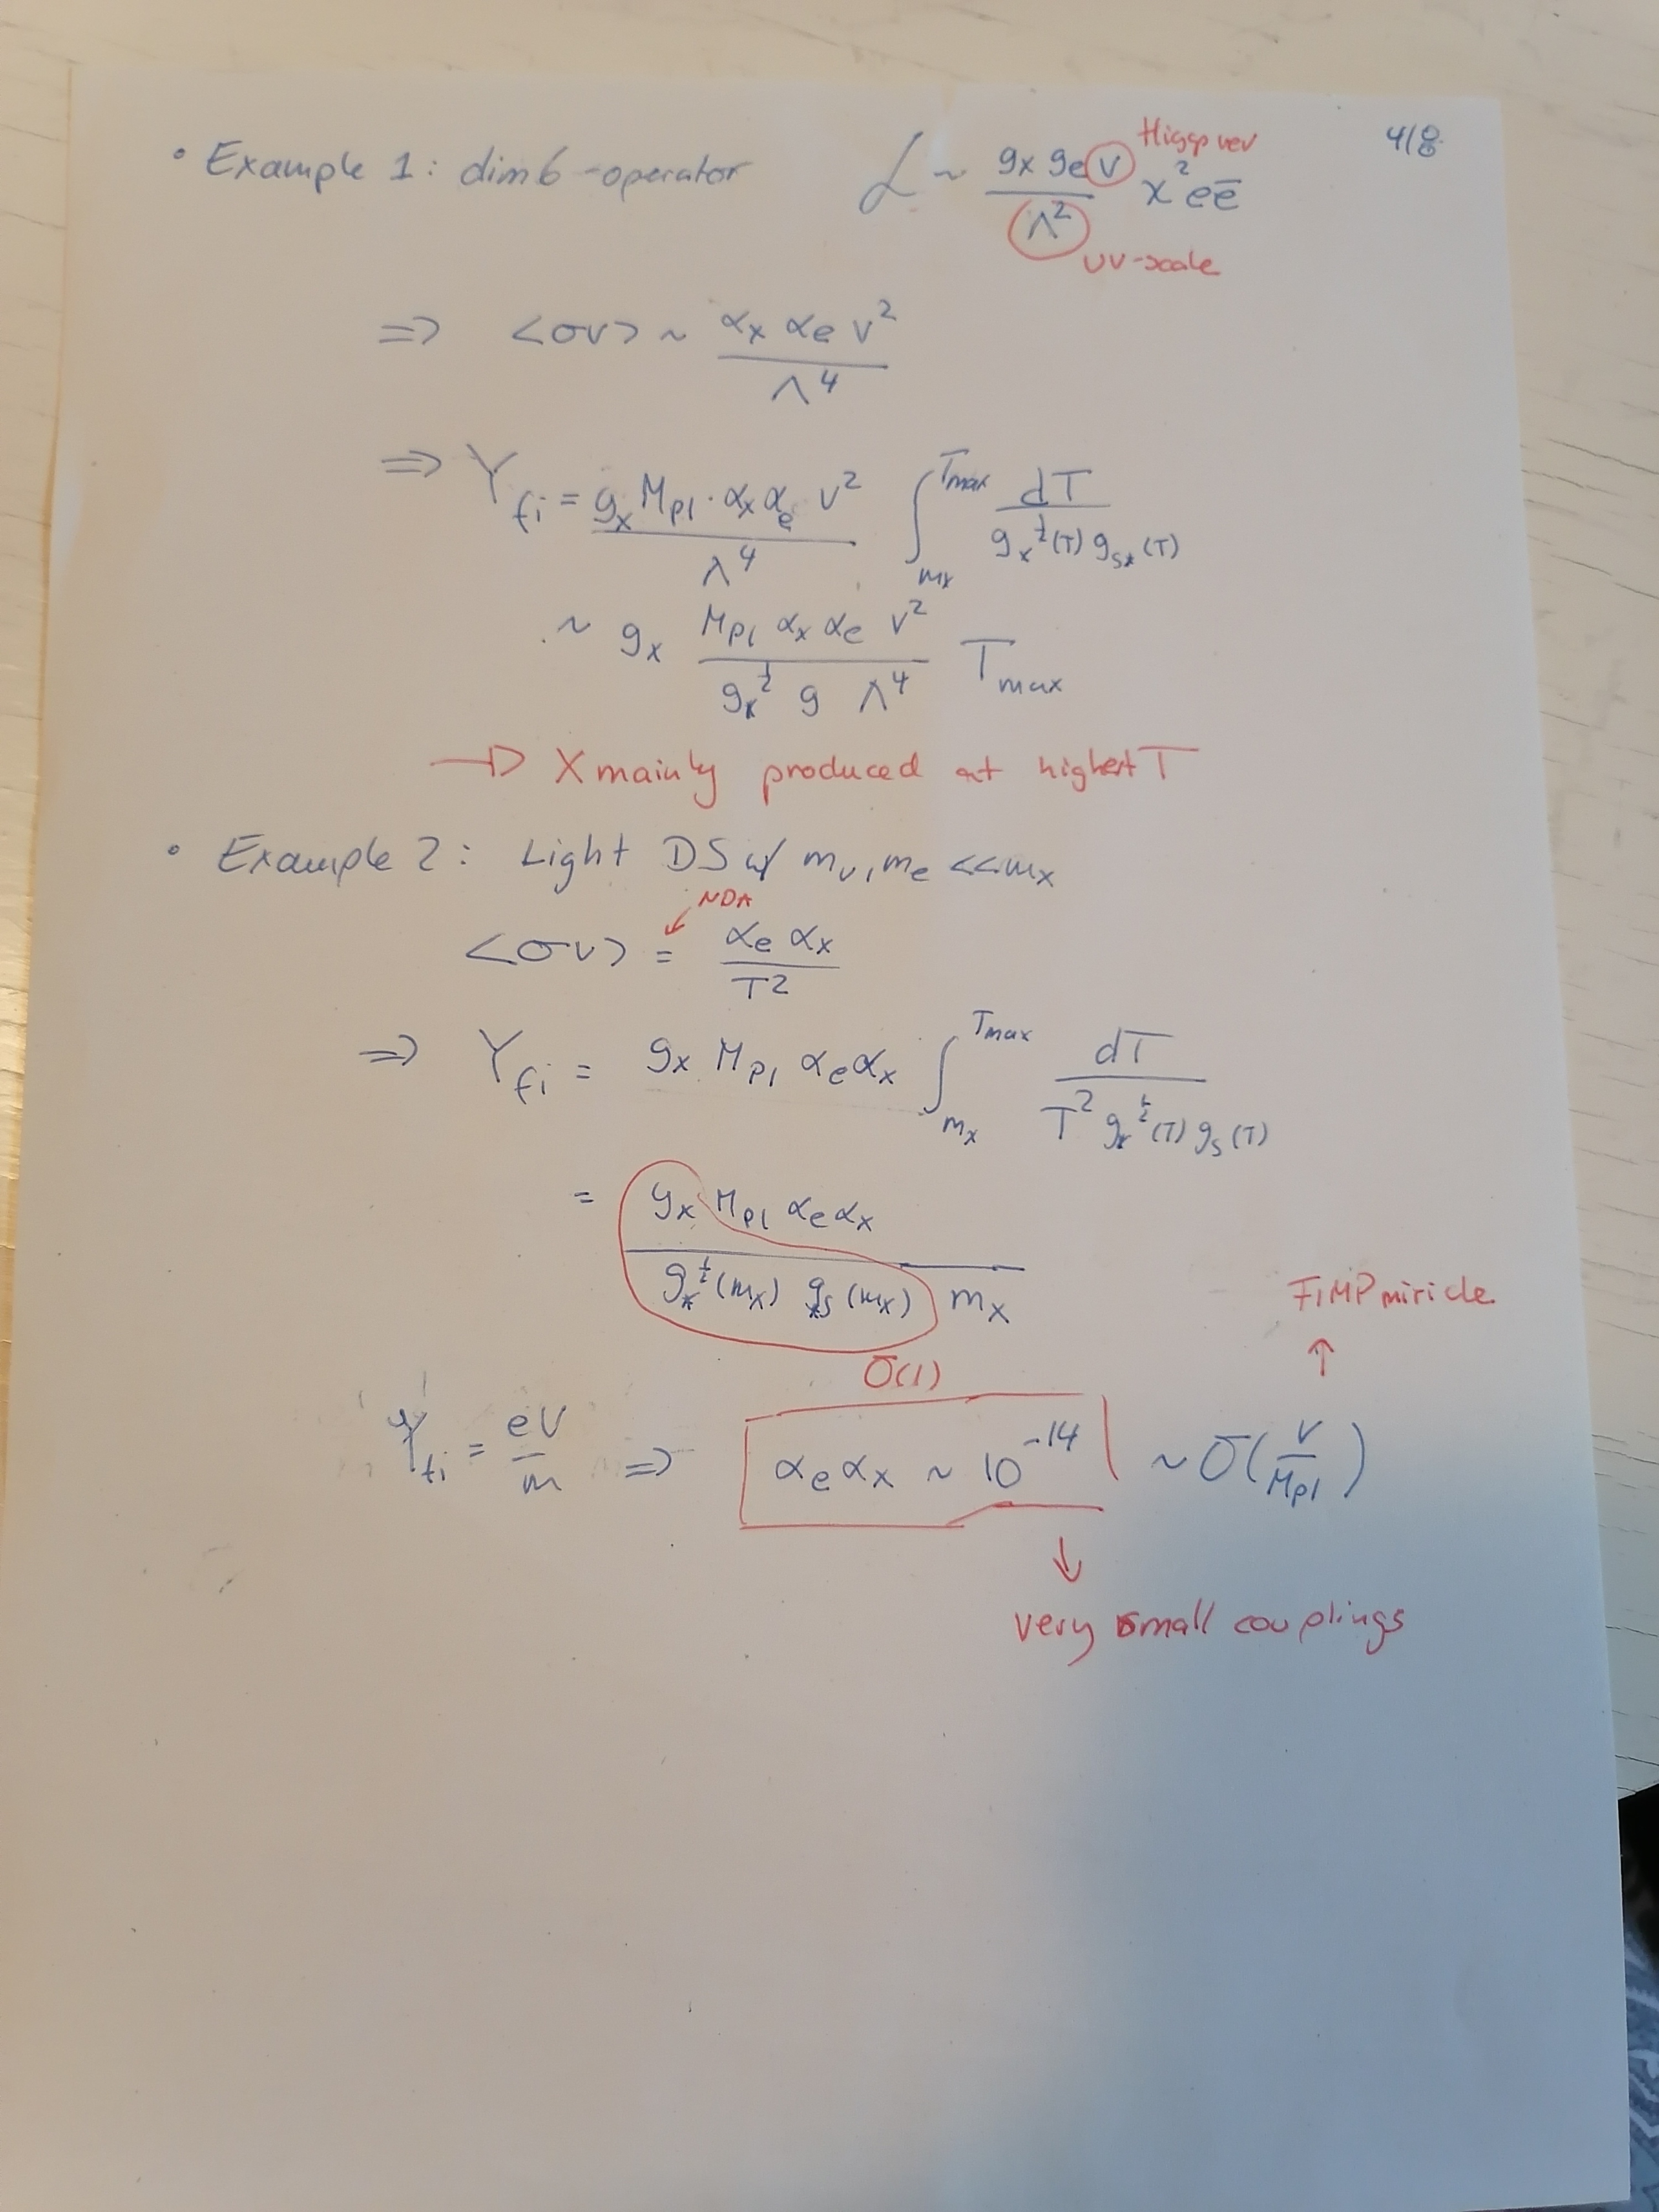 4/8
• Example 1: dim6-operator ℒ ~ (gx ge v)/Λ² χ² e ē
Higgs vev
UV-scale
=> <σv> ~ (αx αe v²)/Λ⁴
=> Y_fi = (gx M_Pl · αx αe v²)/Λ⁴ ∫_{mx}^{Tmax} dT/(g_x^{1/2}(T) g_{s*}(T))
~ gx (M_Pl αx αe v²)/(g_*^{1/2} g Λ⁴) T_max
→ X mainly produced at highest T
• Example 2: Light DS w/ m_v, m_e << m_x
NDA
<σv> = (αe αx)/T²
=> Y_fi = gx M_Pl αe αx ∫_{mx}^{Tmax} dT/(T² g_*^{1/2}(T) g_s(T))
= (gx M_Pl αe αx)/(g_*^{1/2}(mx) g_{*s}(mx) mx)
O(1)
FIMP miricle
↑
Y_fi = eV/m => αe αx ~ 10^{-14} ~ O(v/M_Pl)
↓
very small couplings